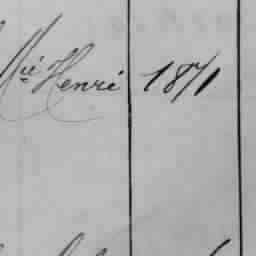 Mie Henri 1871